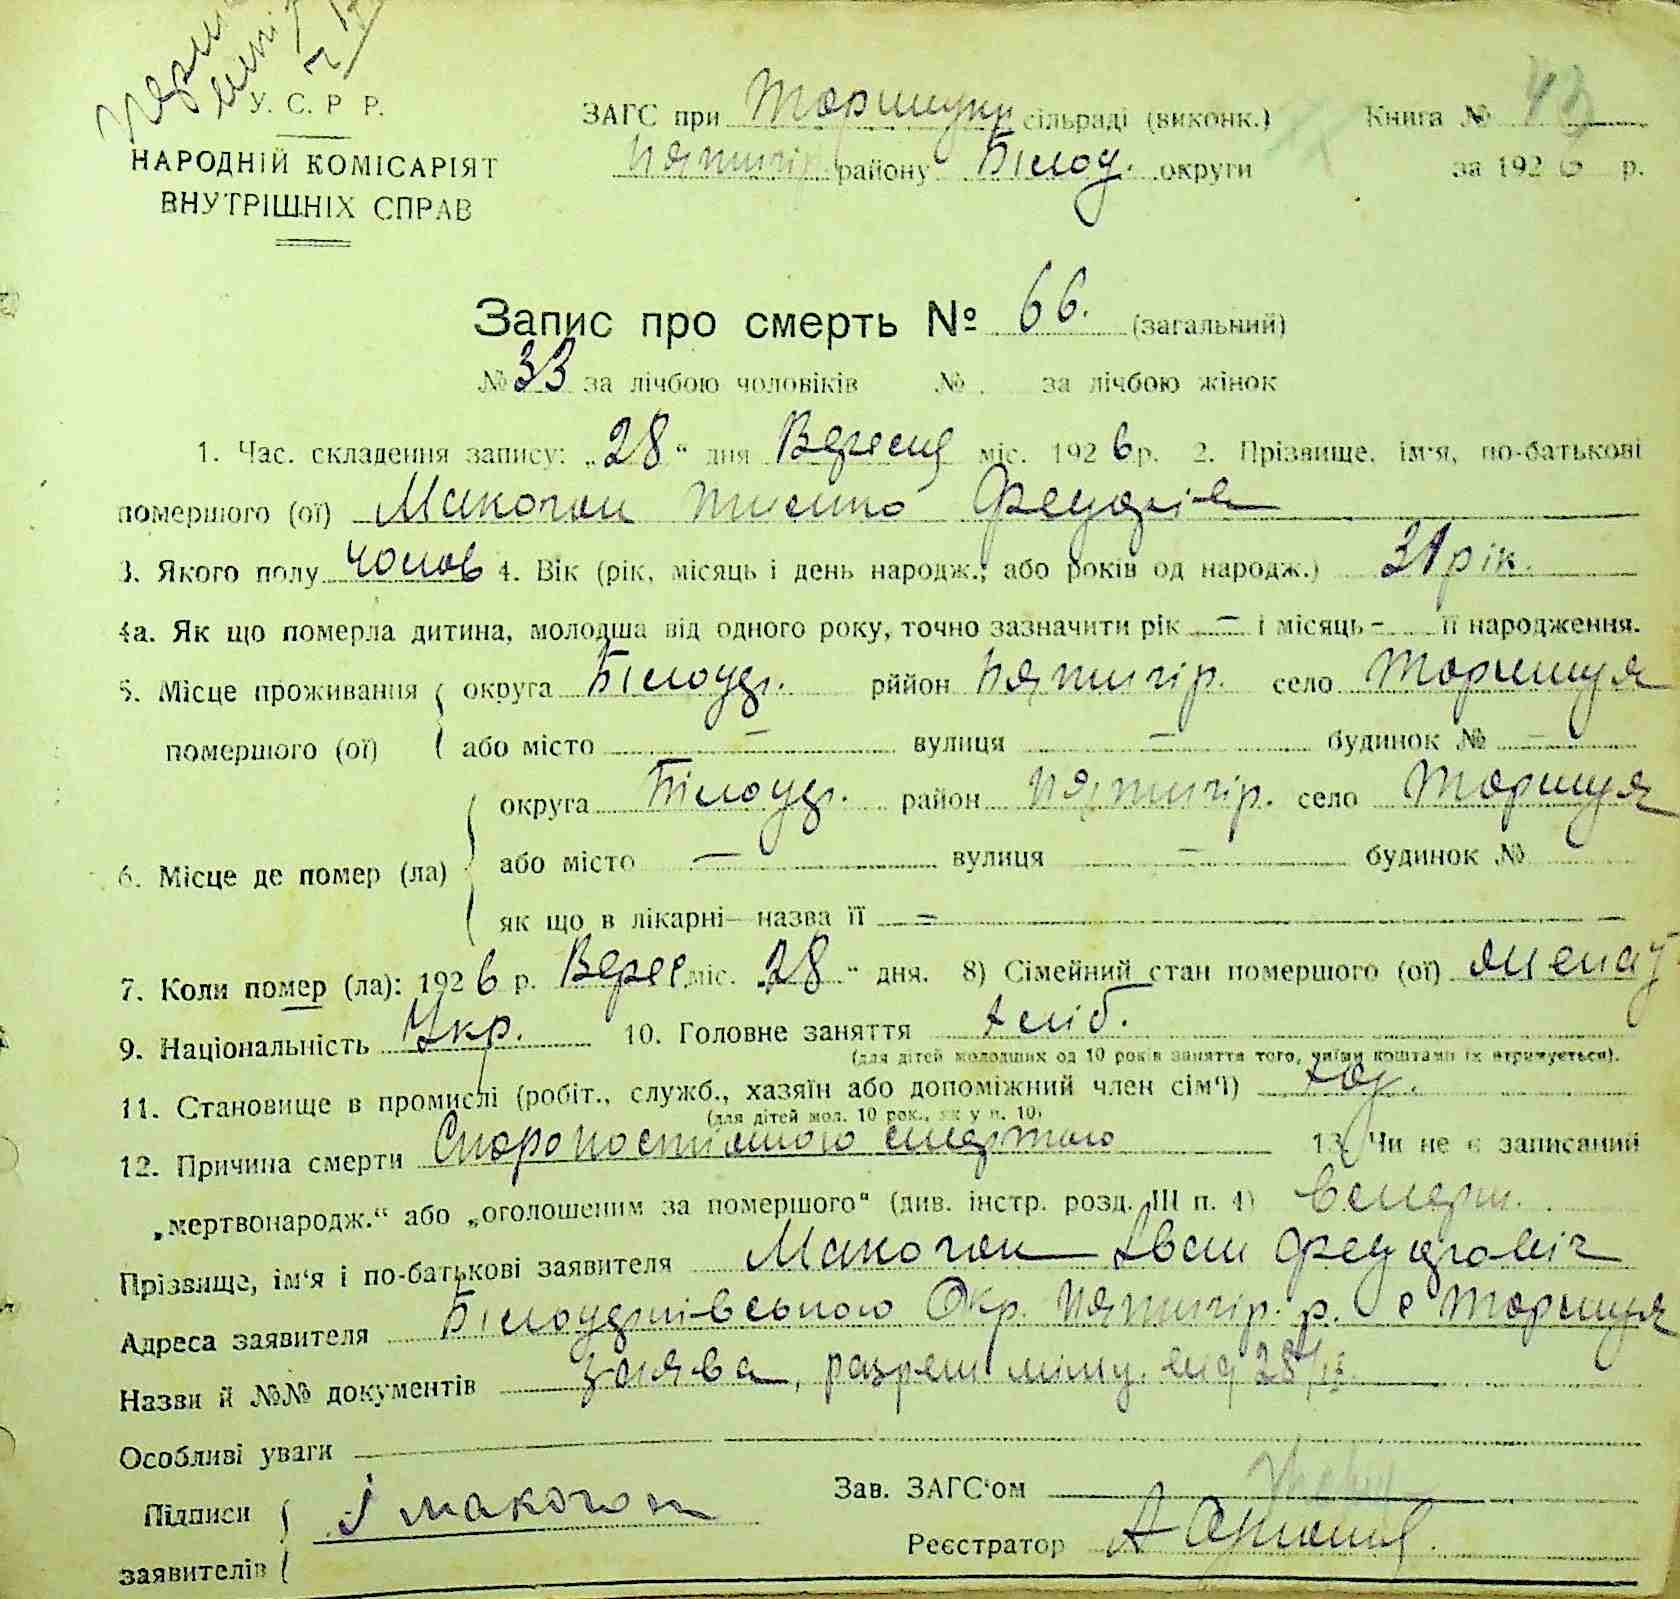 У. С. Р Р.
НАРОДНІЙ КОМІСАРІЯТ
ВНУТРІШНІХ СПРАВ
ЗАГС при сільраді (виконк.) Книга №
П'ятигір. району Білоц. округи за 1926 р.
Запис про смерть № 66. (загальний)
№ 33 за лічбою чоловіків №. за лічбою жінок
1. Час. складення запису: „28“ дня Вересня міс. 1926 р. 2. Прізвище, ім'я, по-батькові
померлого (ої) Макогон Федорів
3. Якого полу чолов 4. Вік (рік, місяць і день народж., або років од народж.) 31 рік.
4а. Як що померла дитина, молодша від одного року, точно зазначити рік – і місяць - її народження.
5. Місце проживання округа Білоцер. рййон П'ятигір. село Торчиця
помершого (ої) або місто – вулиця – будинок № –
округа Білоцер. район П'ятигір. село Торчиця
6. Місце де помер (ла) або місто – вулиця – будинок №
як що в лікарні—назва її =
7. Коли помер (ла): 1926 р. Верес міс. 28 “ дня. 8) Сімейний стан помершого (ої)
9. Національність Укр. 10. Головне заняття хліб.
(для дітей молодших од 10 років заняття того, чиїми коштами їх втримується).
11. Становище в промислі (робіт., служб., хазяїн або допоміжний член сім'ї) хаз.
(для дітей мол. 10 рок., як у п. 10)
12. Причина смерти Скоропостижною смертью 13. Чи не є записаний
„мертвонародж.“ або „оголошеним за помершого“ (див. інстр. розд. ІІІ п. 4)
Прізвище, ім'я і по-батькові заявителя Макогон Іван Федорович
Адреса заявителя Білоцерківського Окр. П'ятигір. р. с Торчиця
Назви й №№ документів заява, 28/IX
Особливі уваги
Підписи І макогон Зав. ЗАГС‘ом
заявителів Реєстратор А